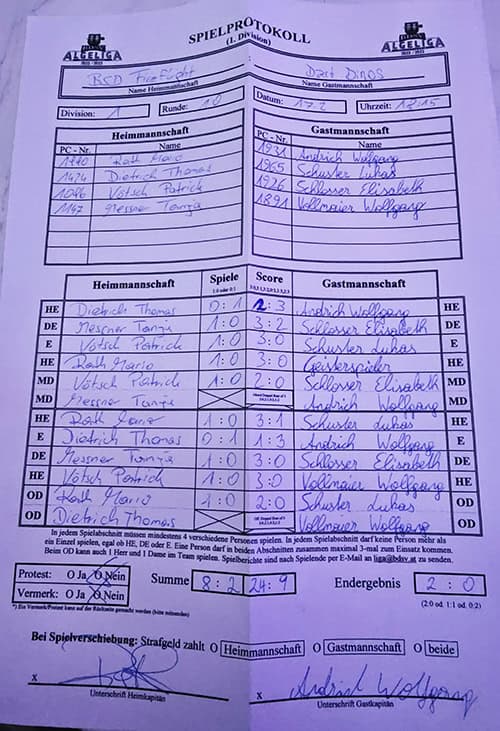 SPIELPROTOKOLL
(1. Division)
ALGELIGA
ALGELIGA
BSD Firefight Dart Dinos
Name Heimmannschaft Name Gastmannschaft
Division: 1 Runde: 10 Datum: 17.2 Uhrzeit: 18:15
Heimmannschaft Gastmannschaft
PC - Nr. Name PC - Nr. Name
Rath Mario 1931 Andrich Wolfgang
1424 Dietrich Thomas 1965 Schuster Lukas
1086 Vötsch Patrick 1926 Schlosser Elisabeth
1147 Messner Tanja 1891 Vollmaier Wolfgang
Heimmannschaft Spiele Score Gastmannschaft
1:0 oder 0:1
HE Dietrich Thomas 0:1 2:3 Andrich Wolfgang HE
DE Messner Tanja 1:0 3:2 Schlosser Elisabeth DE
E Vötsch Patrick 1:0 3:0 Schuster Lukas E
HE Rath Mario 1:0 3:0 Geisterspieler HE
MD Vötsch Patrick 1:0 2:0 Schlosser Elisabeth MD
MD Messner Tanja Andrich Wolfgang MD
HE Rath Mario 1:0 3:1 Schuster Lukas HE
E Dietrich Thomas 0:1 1:3 Andrich Wolfgang E
DE Messner Tanja 1:0 3:0 Schlosser Elisabeth DE
HE Vötsch Patrick 1:0 3:0 Vollmaier Wolfgang HE
OD Rath Mario 1:0 2:0 Schuster Lukas OD
OD Dietrich Thomas Vollmeier Wolfgang OD
In jedem Spielabschnitt müssen mindestens 4 verschiedene Personen spielen. In jedem Spielabschnitt darf keine Person mehr als
ein Einzel spielen, egal ob HE, DE oder E. Eine Person darf in beiden Abschnitten zusammen maximal 3-mal zum Einsatz kommen.
Beim OD kann auch 1 Herr und 1 Dame im Team spielen. Spielberichte sind nach Spielende per E-Mail an liga@bdsv.at zu senden.
Protest: O Ja O Nein Summe 8:2 24:9 Endergebnis 2:0
Vermerk: O Ja O Nein (2:0 od. 1:1 od. 0:2)
*) Ein Vermerk/Protest kann auf der Rückseite gemacht werden (bitte ankreuzen)
Bei Spielverschiebung: Strafgeld zahlt O Heimmannschaft O Gastmannschaft O beide
x x Andrich Wolfgang
Unterschrift Heimkapitän Unterschrift Gastkapitän